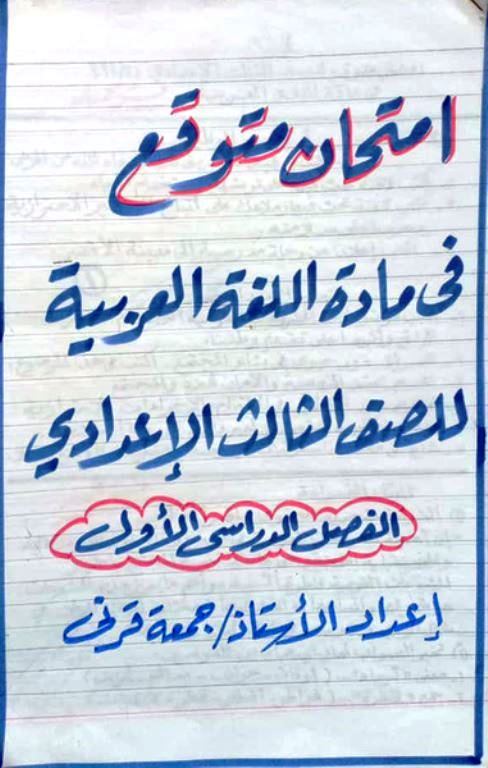 امتحان متوقع
فى مادة اللغة العربية
للصف الثالث الإعدادي
الفصل الدراسى الأول
إعداد الأستاذ/جمعة قرنى